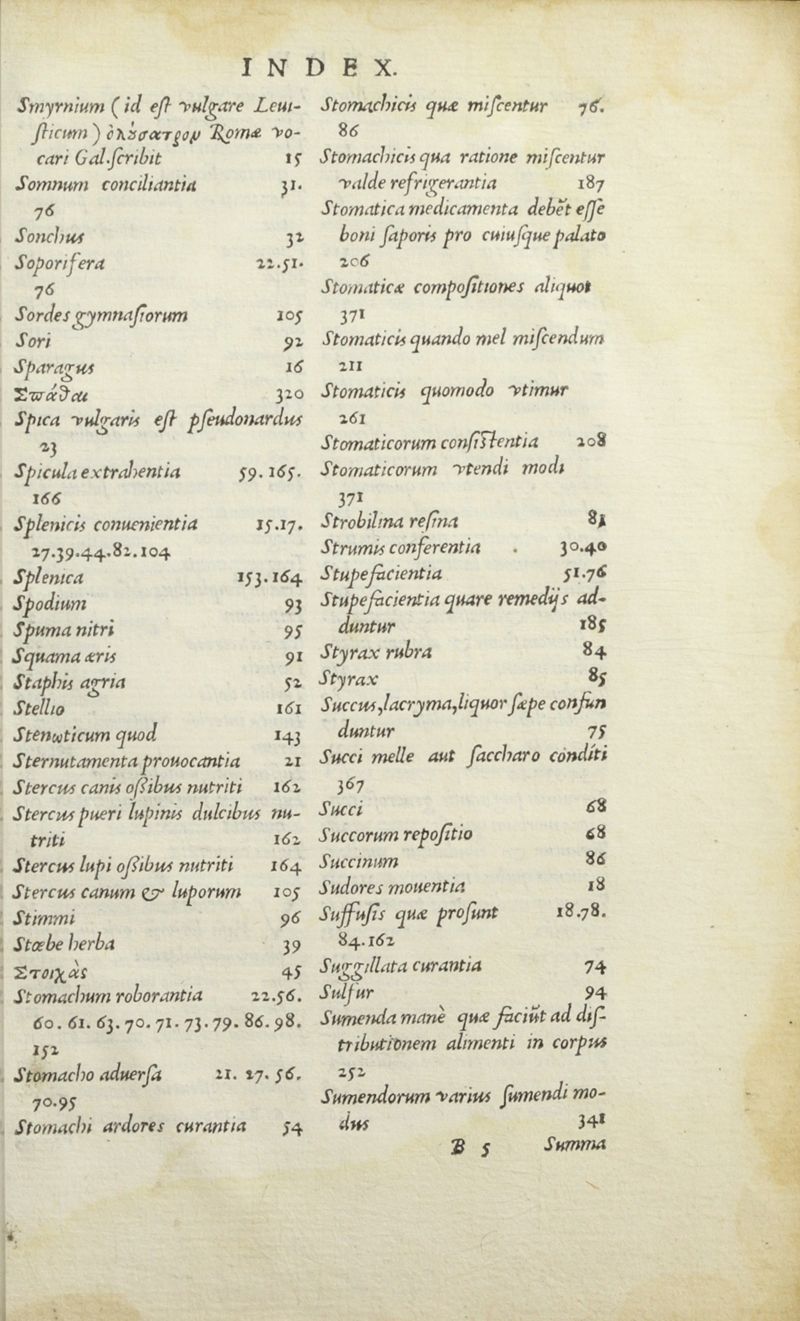 INDEX.
Smyrnium (id eſt vulgare Leui-
ſticum) ὀλύσατρον Romæ vo-
cari Gal.ſcribit 15
Somnum conciliantia 31.
76
Sonchus 32
Soporifera 22.51.
76
Sordes gymnaſiorum 105
Sori 92
Sparagus 16
Σπάθαι 320
Spica vulgaris eſt pſeudonardus
23
Spicula extrahentia 59.165.
166
Splenicis conuenientia 15.17.
27.39.44.82.104
Splenica 153.164
Spodium 93
Spuma nitri 95
Squama æris 91
Staphis agria 52
Stellio 161
Stenωticum quod 143
Sternutamenta prouocantia 21
Stercus canis oſsibus nutriti 162
Stercus pueri lupinis dulcibus nu-
triti 162
Stercus lupi oſsibus nutriti 164
Stercus canum & luporum 105
Stimmi 96
Stœbe herba 39
Στοιχὰς 45
Stomachum roborantia 22.56.
60.61.63.70.71.73.79.86.98.
152
Stomacho aduerſa 21.27.56.
70.95
Stomachi ardores curantia 54
Stomachicis quæ miſcentur 76.
86
Stomachicis qua ratione miſcentur
valde refrigerantia 187
Stomatica medicamenta debēt eſſe
boni ſaporis pro cuiuſque palato
206
Stomaticæ compoſitiones aliquot
371
Stomaticis quando mel miſcendum
211
Stomaticis quomodo vtimur
261
Stomaticorum conſiſtentia 208
Stomaticorum vtendi modi
371
Strobilina reſina 81
Strumis conferentia 30.40
Stupefacientia 51.76
Stupefacientia quare remedijs ad-
duntur 185
Styrax rubra 84
Styrax 85
Succus,lacryma,liquor ſæpe confun
duntur 75
Succi melle aut ſaccharo conditi
367
Succi 68
Succorum repoſitio 68
Succinum 86
Sudores mouentia 18
Suffuſis quæ proſunt 18.78.
84.162
Suggillata curantia 74
Sulfur 94
Sumenda manè quæ faciūt ad diſ-
tributionem alimenti in corpus
252
Sumendorum varius ſumendi mo-
dus 341
B 5 Summa